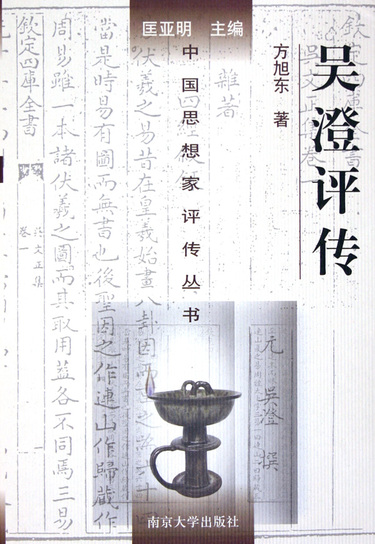 吴澄评传
方旭东 著
匡亚明 主编
中国思想家评传丛书
钦定四库全书
吴文正集卷一
元 吴澄 撰
雜著
四經叙録
伏羲之易昔在皇羲始畫八卦因而重之為六十四
當是時易有圖而無書也後聖因之作連山作歸藏作
周易雖一本諸伏羲之圖而其取用蓋各不同焉三易
欽定四庫全書
吴文正集
卷一
南京大学出版社